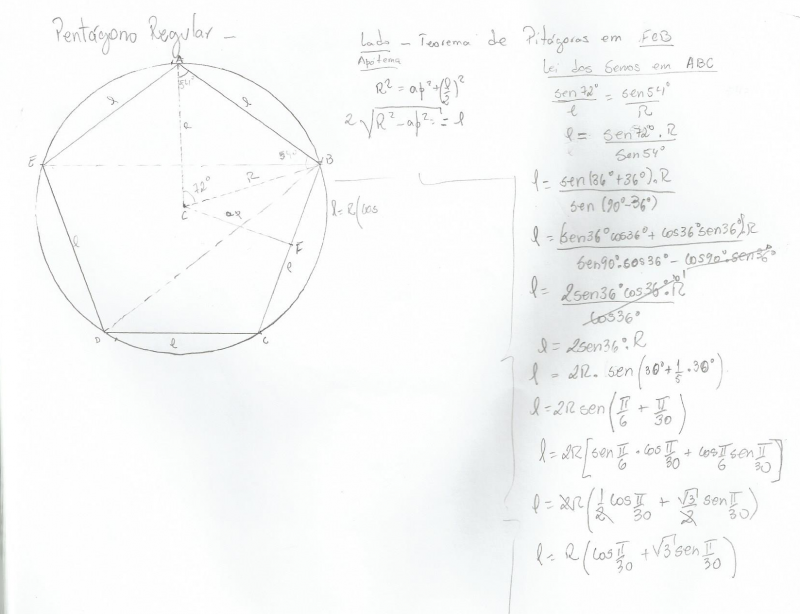 Pentágono Regular -
A
54°
l
l
R
E
54°
B
72°
R
C
ap
F
l
l
D
l
C
Lado - Teorema de Pitágoras em FCB
Apótema
R² = ap² + (l/2)²
2√(R² - ap²) = l
l = R(cos
Lei dos Senos em ABC
sen72°/l = sen54°/R
l = sen72°.R/Sen54°
l = sen(36°+36°).R/sen(90°-36°)
l = (sen36°cos36° + cos36°sen36°)R/sen90°.cos36° - cos90°.sen36°
l = 2sen36°cos36°.R/cos36°
l = 2sen36°.R
l = 2R. sen(30° + 1/5 . 30°)
l = 2R sen(π/6 + π/30)
l = 2R[sen π/6 . cos π/30 + cos π/6 sen π/30]
l = 2R(1/2 cos π/30 + √3/2 sen π/30)
l = R(cos π/30 + √3 sen π/30)